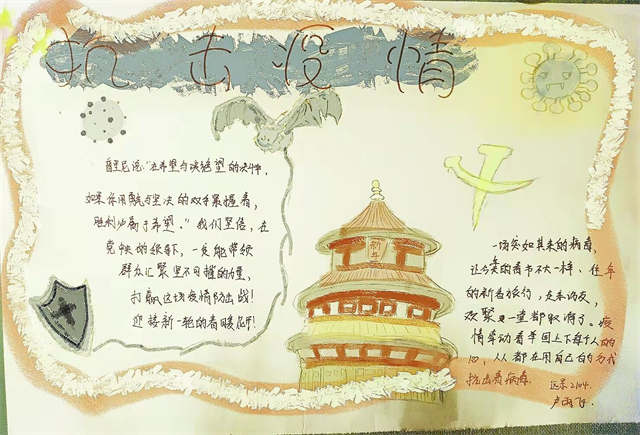 抗击疫情
普里尼说:"在希望与失望的决斗中,
如果你用勇气与坚决的双手紧握着,
胜利必属于希望。"我们坚信,在
党中央的领导下,一定能带领
群众汇聚坚不可摧的力量,
打赢这场疫情防控战!
迎接新一轮的春暖花开!
新年
一场突如其来的病毒,
让今年的春节不太一样、往年
的新春旅行,走亲访友,
欢聚一堂都取消了。疫
情牵动着举国上下每个人的
心,人人都在用自己的方式
抗击着病毒.
远景2104.
卢雨飞.